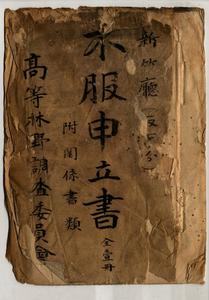 新竹廳
不服申立書
附関係書類
全壹冊
高等林野調査委員會